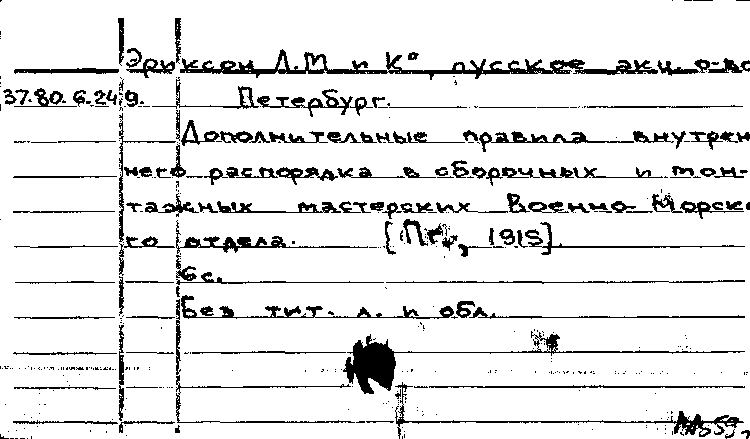 Эриксон, Л.М и К°, русское акц. о-во
37.80.6.249. Петербург.
Дополнительные правила внутрен
него распорядка в сборочных и мон-
тажных мастерских Военно-Морско
го отдела. [Пг., 1915].
6 с.
Без тит. л. и обл.